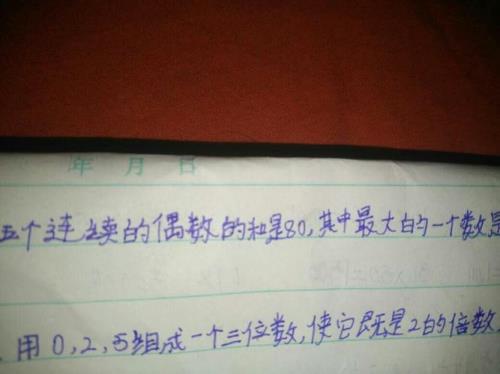 年 月 日
五个连续的偶数的和是80,其中最大的一个数是
用0,2,5组成一个三位数,使它既是2的倍数